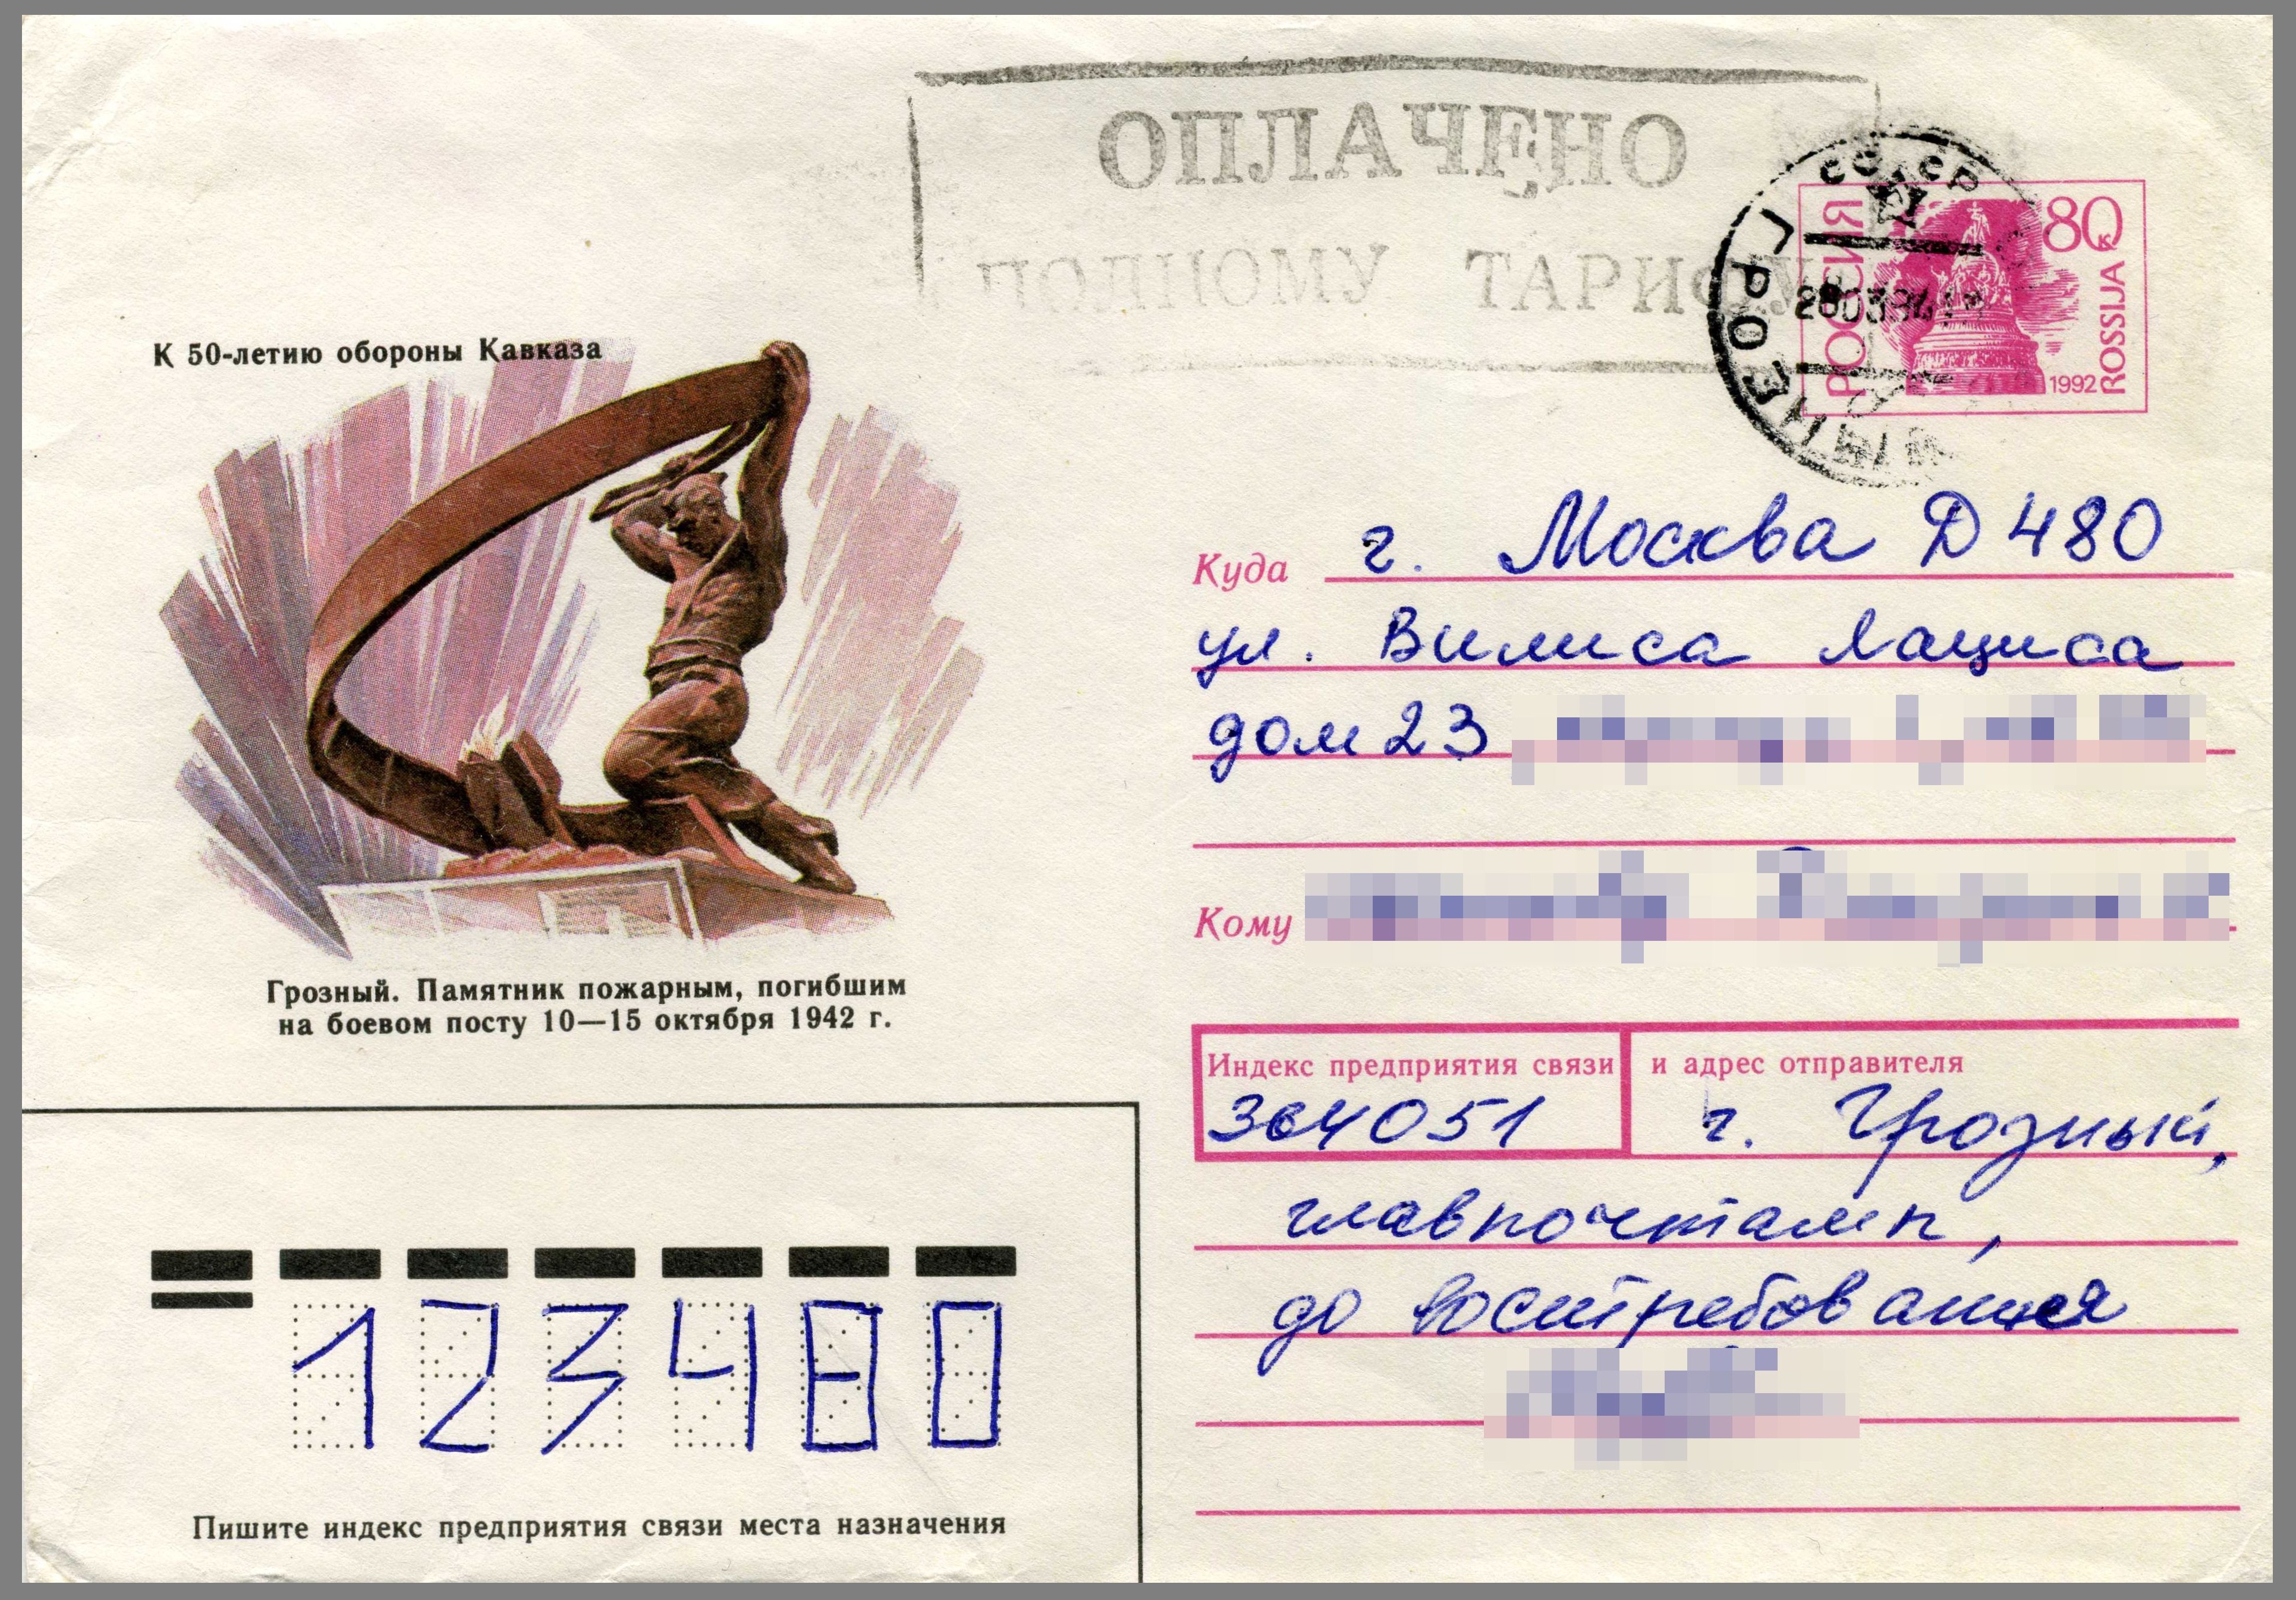 ОПЛАЧЕНО
ПОЛНОМУ ТАРИФУ
СССР
ГРОЗНЫЙ
РОССИЯ
80 к
ROSSIJA
1992
К 50-летию обороны Кавказа
Грозный. Памятник пожарным, погибшим
на боевом посту 10—15 октября 1942 г.
Куда г. Москва Д 480
ул. Вилиса Лациса
дом 23
Кому
Индекс предприятия связи и адрес отправителя
364051 г. Грозный,
главпочтамп,
до востребования
123480
Пишите индекс предприятия связи места назначения